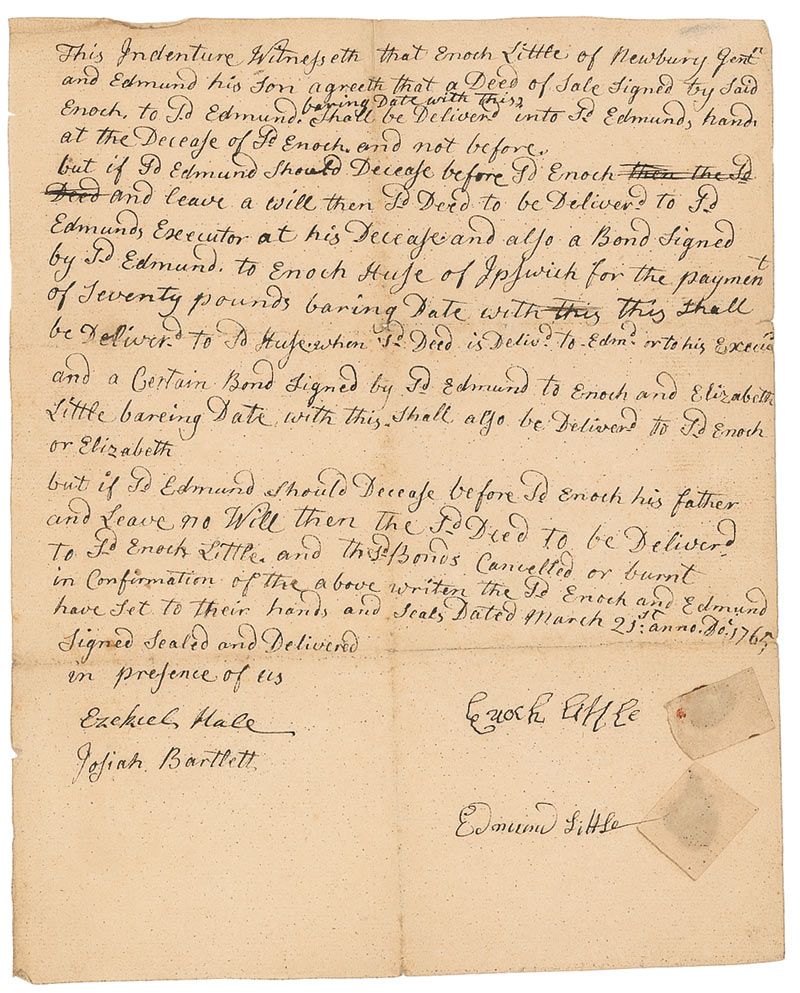 This Indenture Witnesseth that Enoch Little of Newbury Gentn
and Edmund his Son agreeth that a Deed of Sale Signed by Said
Enoch. to Sd Edmund. baring Date with this, Shall be Deliverd into Sd Edmunds hands
at the Decease of Sd Enoch. and not before.
but if Sd Edmund Should Decease before Sd Enoch then the Sd
Deed and leave a will then Sd Deed to be Deliver.d to Sd
Edmunds Executor at his Decease. and also a Bond Signed
by Sd Edmund. to Enoch Huse of Ipswich for the payment
of Seventy pounds baring Date with this this Shall
be Deliver.d to Sd Huse. when Sd Deed is Deliv.d to Edm.d or to his
and a Certain Bond Signed by Sd Edmund to Enoch and Elizabeth
Little bareing Date with this. Shall also be Deliverd to Sd Enoch
or Elizabeth
but if Sd Edmund Should Decease before Sd Enoch his father
and Leave no Will then the Sd Deed to be Deliver.d
to Sd Enoch Little. and the Sd Bonds Cancelled or burnt
in Confirmation of the above writen the Sd Enoch and Edmund
have Set to their hands and Seals Dated March 21st anno. Do. 1765
Signed Sealed and Delivered
in presence of us
Ezekiel Hale
Enoch Little
Josiah Bartlett
Edmund Little